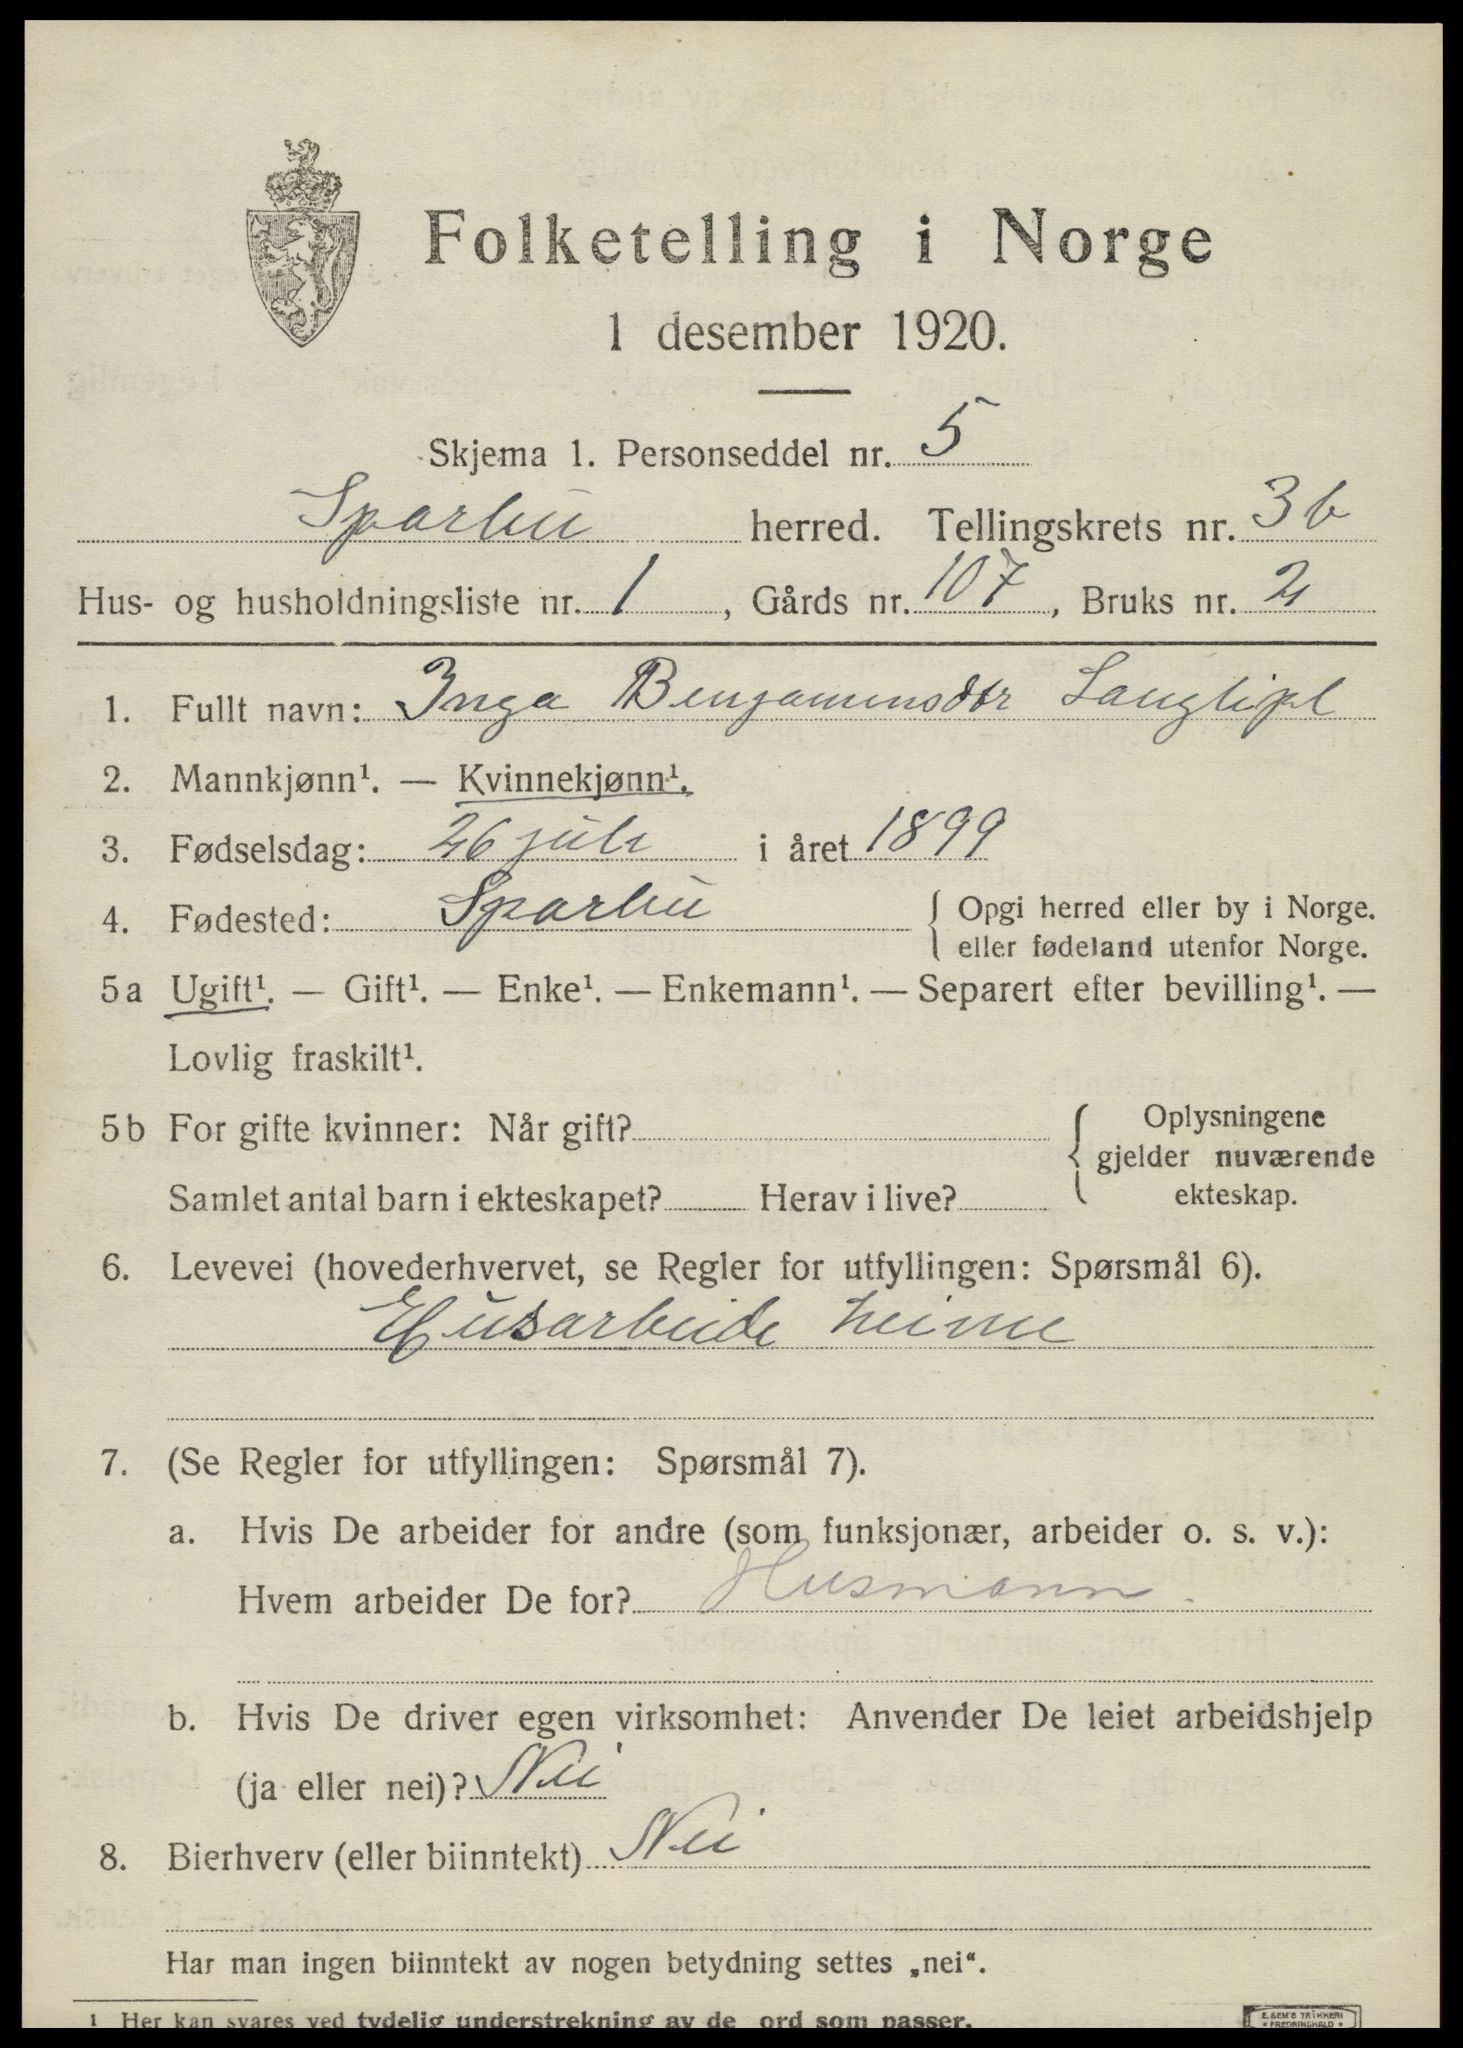 Folketelling i Norge
1 desember 1920.
Skjema 1. Personseddel nr. 5
Sparbu herred. Tellingskrets nr. 3b
Hus- og husholdningsliste nr. 1, Gårds nr. 107, Bruks nr. 2
1. Fullt navn: Inga Benjaminsdtr
2. Mannkjønn¹. — Kvinnekjønn¹.
3. Fødselsdag: 26 juli i året 1899
4. Fødested: Sparbu { Opgi herred eller by i Norge.
eller fødeland utenfor Norge.
5a Ugift¹. — Gift¹. — Enke¹. — Enkemann¹. — Separert efter bevilling¹. —
Lovlig fraskilt¹.
5b For gifte kvinner: Når gift? { Oplysningene
gjelder nuværende
ekteskap.
Samlet antal barn i ekteskapet? Herav i live?
6. Levevei (hovederhvervet, se Regler for utfyllingen: Spørsmål 6).
Husarbeide heime
7. (Se Regler for utfyllingen: Spørsmål 7).
a. Hvis De arbeider for andre (som funksjonær, arbeider o. s. v.):
Hvem arbeider De for? Husmann.
b. Hvis De driver egen virksomhet: Anvender De leiet arbeidshjelp
(ja eller nei)? Nei
8. Bierhverv (eller biinntekt) Nei
Har man ingen biinntekt av nogen betydning settes „nei“.
1 Her kan svares ved tydelig understrekning av de ord som passer.
E. SEM'S TRYKKERI
FREDRIKSHALD